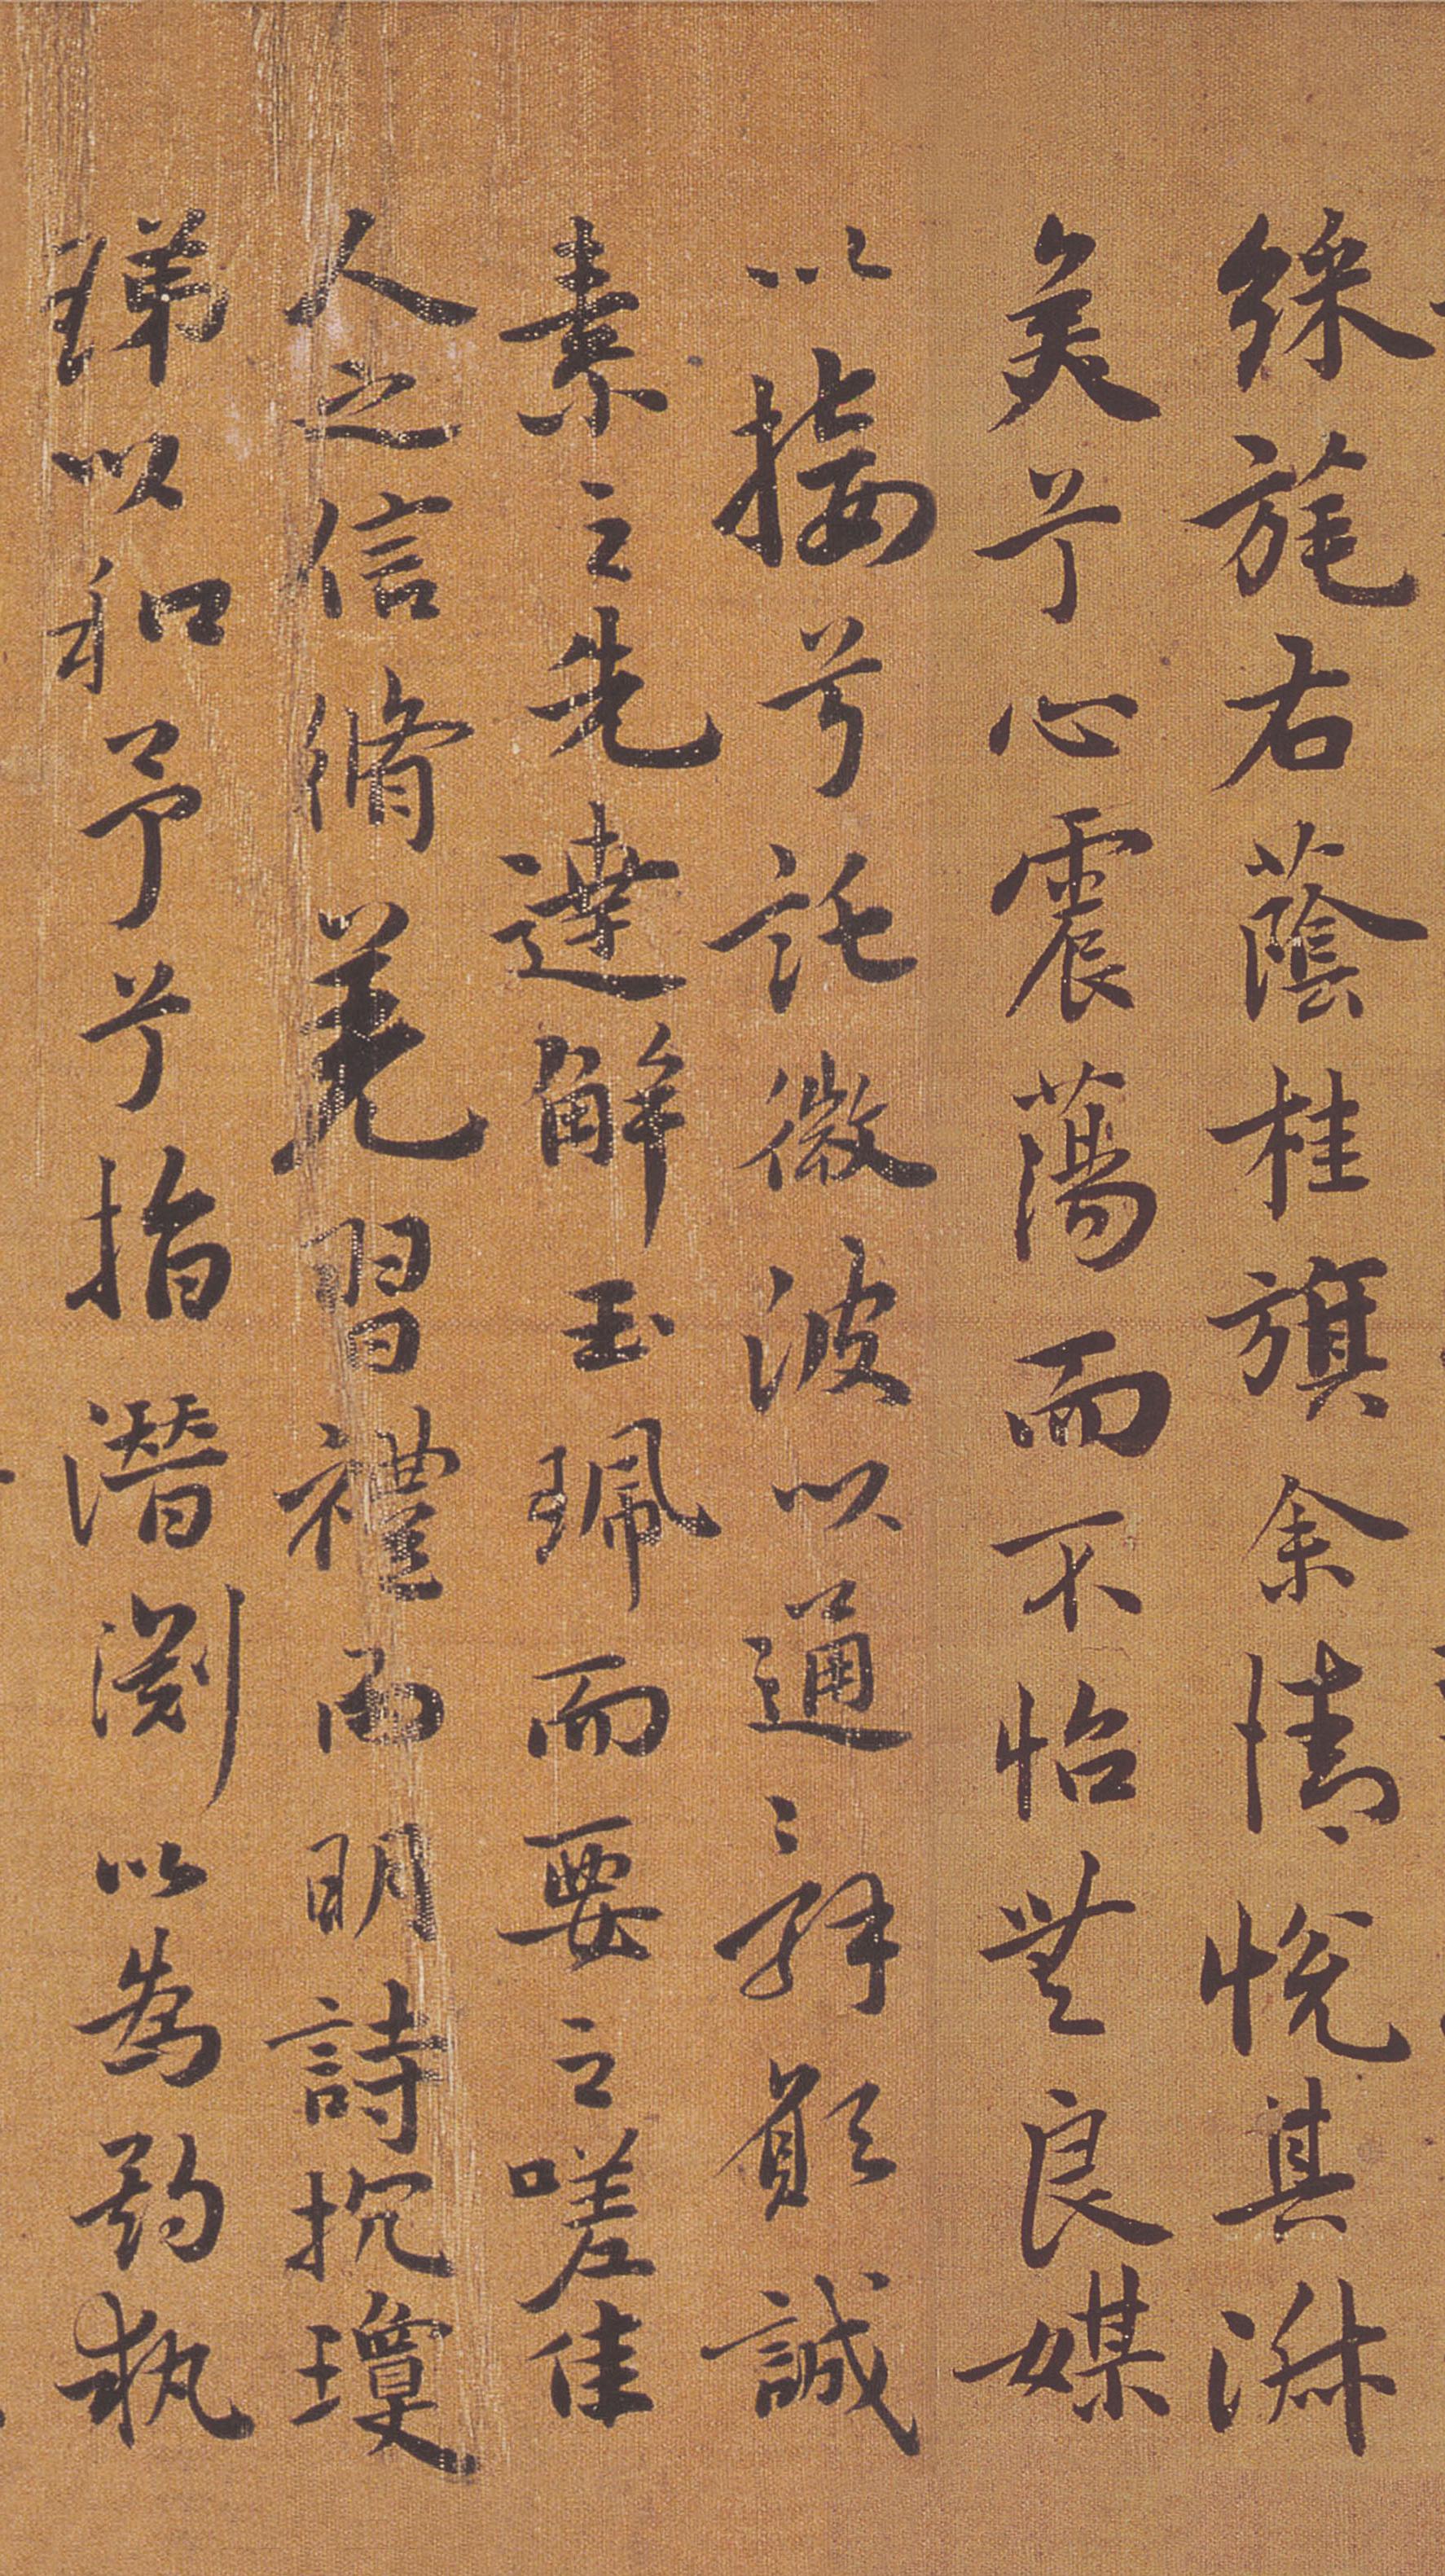 綵旄右蔭桂旗余情悅其淑
美兮心震蕩而不怡無良媒
以接兮託微波以通辭願誠
素之先達解玉珮而要之嗟佳
人之信脩羌習禮而明詩抗瓊
珶以和予兮指潛淵以為期執